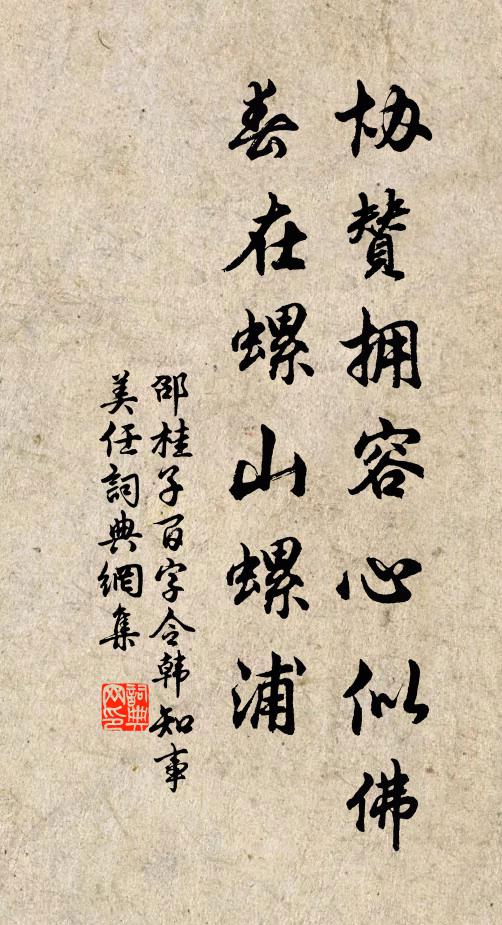 协赞拥容心似佛
春在螺山螺浦
邵桂子百字令韩知事
美任詞典網集
詞典网印